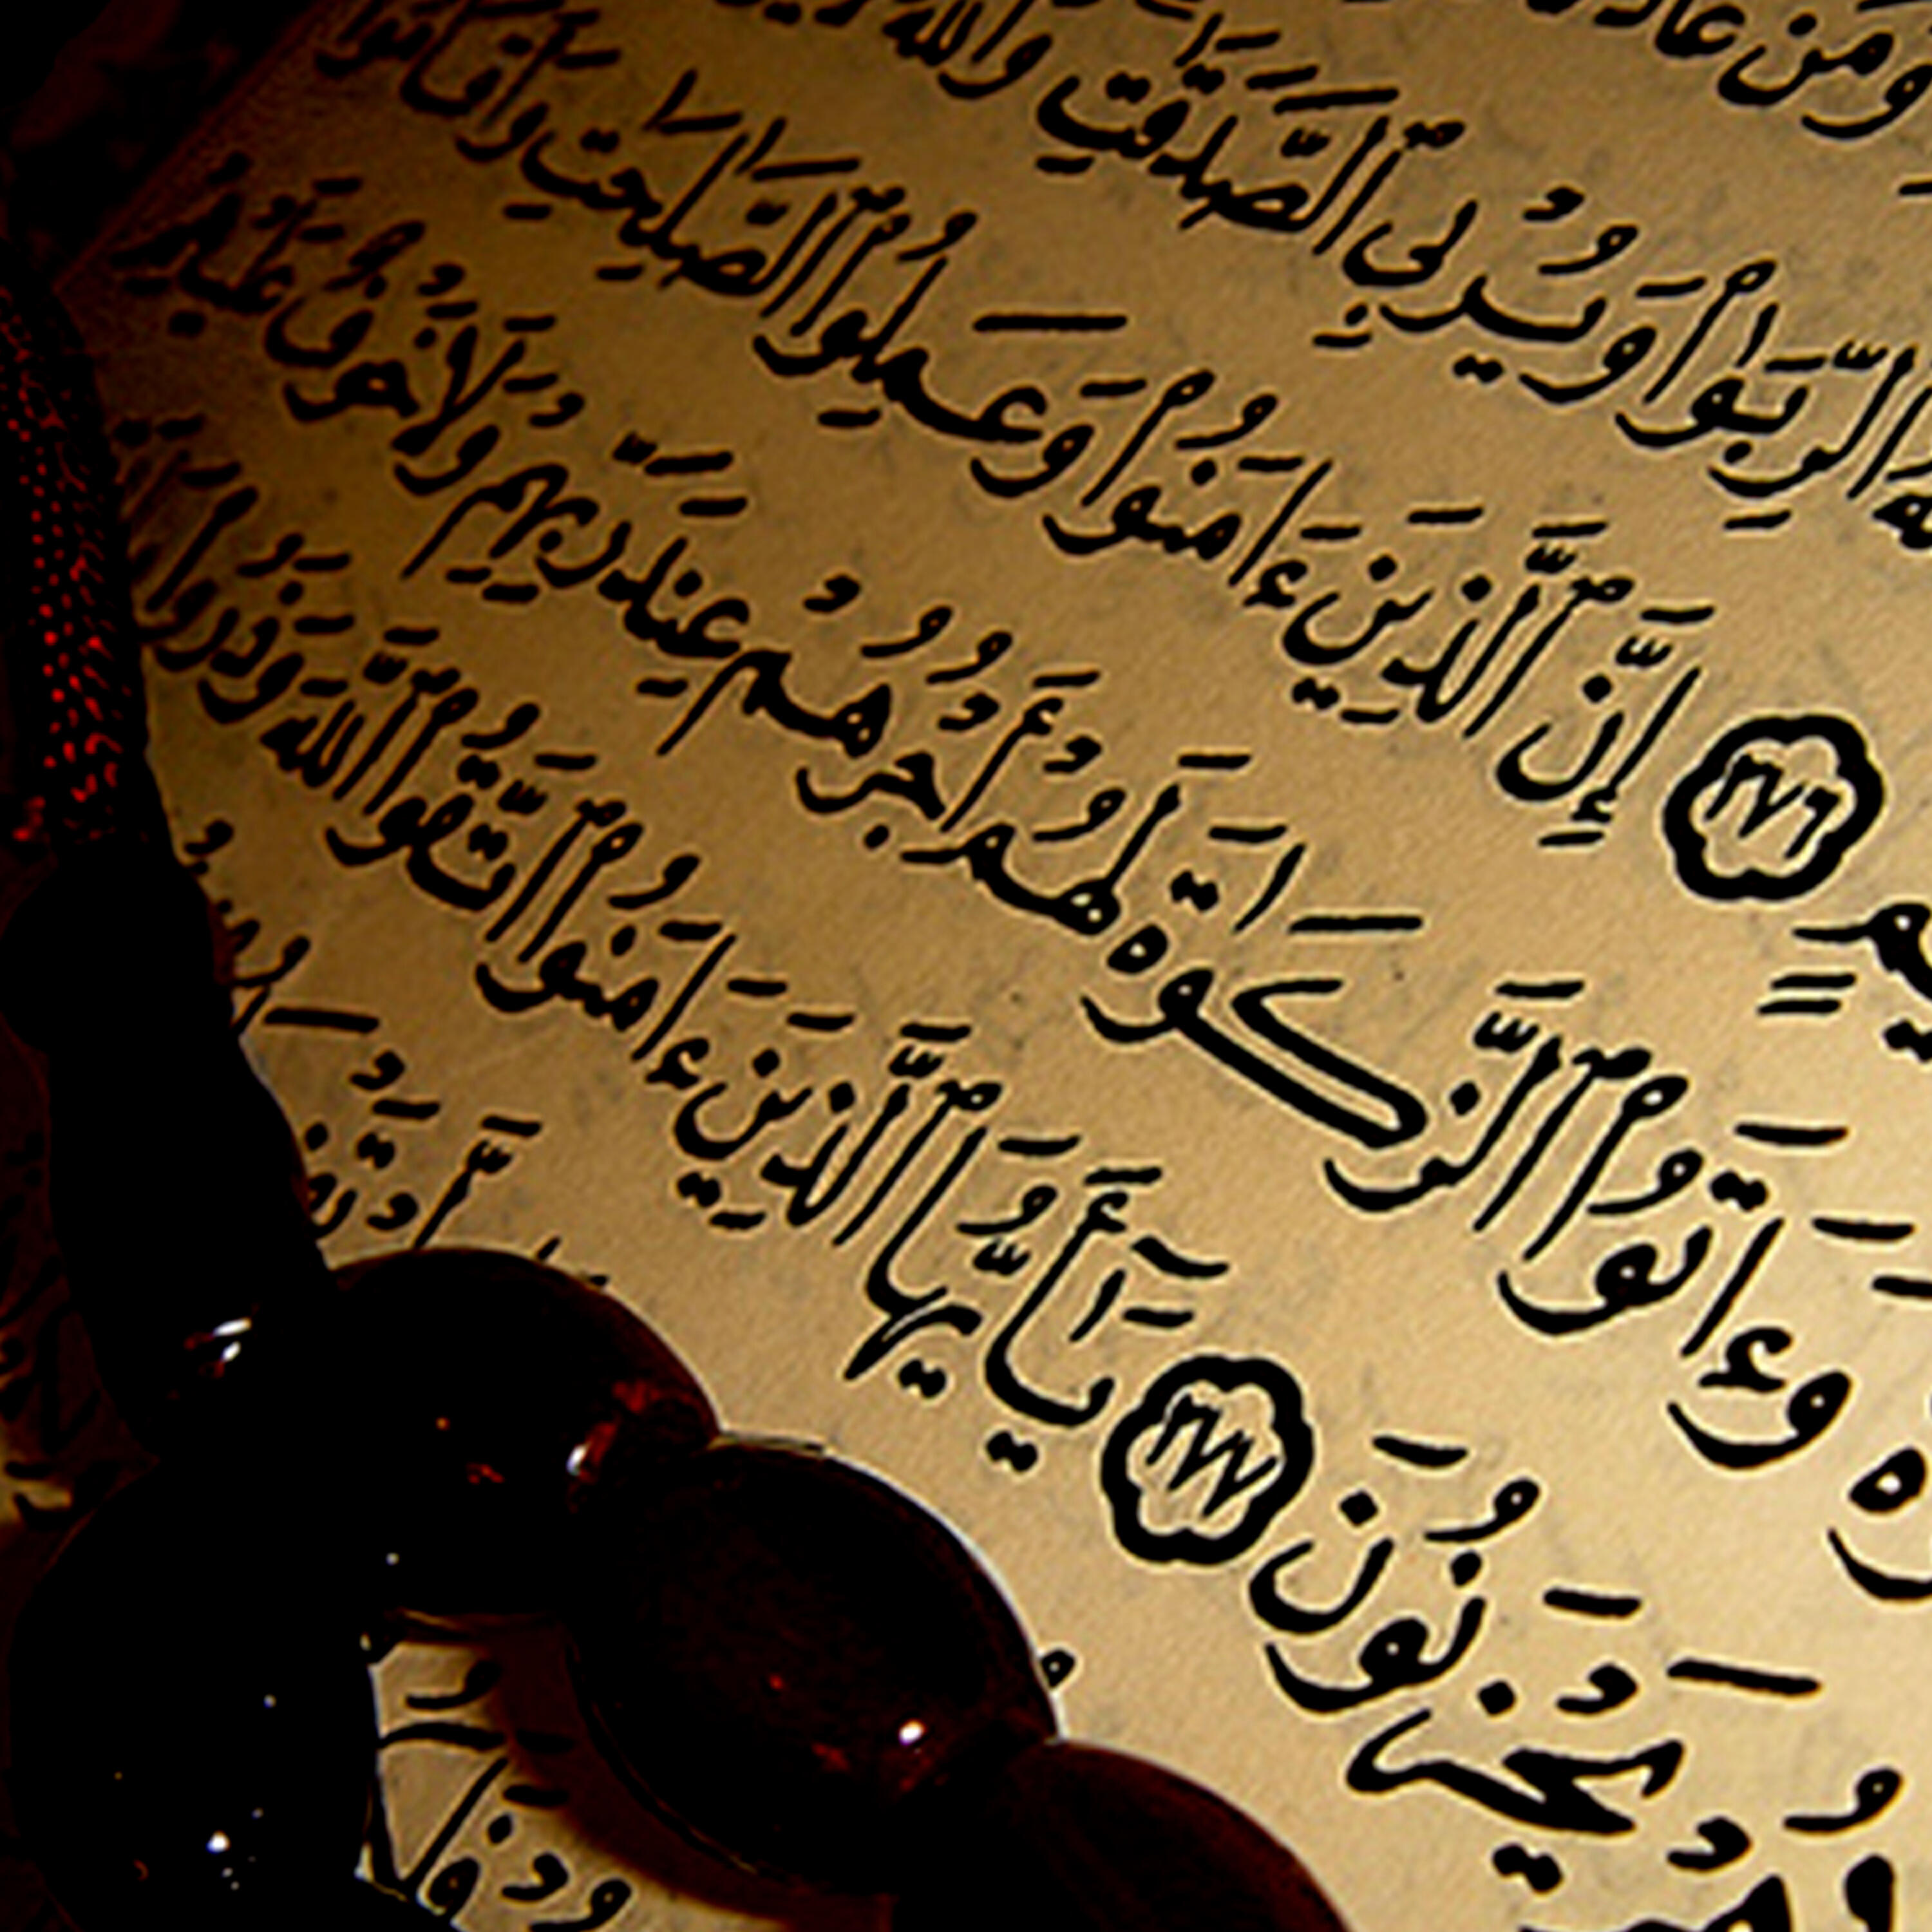 وَمَنْ عَادَ
ٱلرِّبَوٰا۟ وَيُرْبِى ٱلصَّدَقَٰتِ وَٱللَّهُ
إِنَّ ٱلَّذِينَ ءَامَنُوا۟ وَعَمِلُوا۟ ٱلصَّٰلِحَٰتِ وَأَقَامُوا۟
وَءَاتَوُا۟ ٱلزَّكَوٰةَ لَهُمْ أَجْرُهُمْ عِندَ رَبِّهِمْ وَلَا خَوْفٌ عَلَيْهِمْ
يَحْزَنُونَ ٢٧٧ يَٰٓأَيُّهَا ٱلَّذِينَ ءَامَنُوا۟ ٱتَّقُوا۟ ٱللَّهَ وَذَرُوا۟